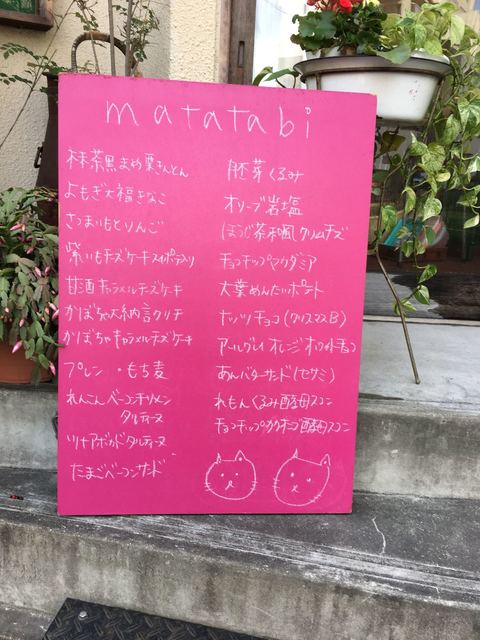 matatabi
抹茶黒まめ栗きんとん
よもぎ大福きなこ
さつまいもとりんご
紫いもチーズケーキスイートポテト入り
甘酒キャラメルチーズケーキ
かぼちゃ大納言クリチ
かぼちゃキャラメルチーズケーキ
プレーン ・もち麦
れんこんベーコンチリメン
タルティーヌ
ツナアボカドタルティーヌ
たまごベーコンサンド
胚芽くるみ
オリーブ岩塩
ほうじ茶和風クリームチーズ
チョコチップマカダミア
大葉めんたいポテト
ナッツチョコ(クリスマスB)
アールグレイオレンジホワイトチョコ
あんバターサンド(セサミ)
れもんくるみ酵母スコーン
チョコチップ 酵母スコーン